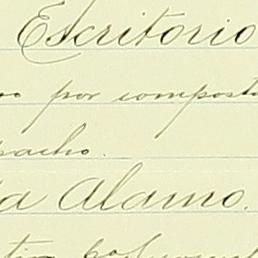 Escritorio
por compost
pacho.
a Alamo.